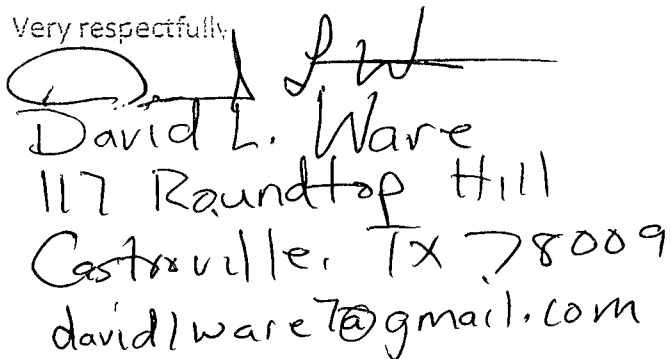 Very respectfully
David L. Ware
117 Roundtop Hill
Castroville, TX 78009
davidlware7@gmail.com